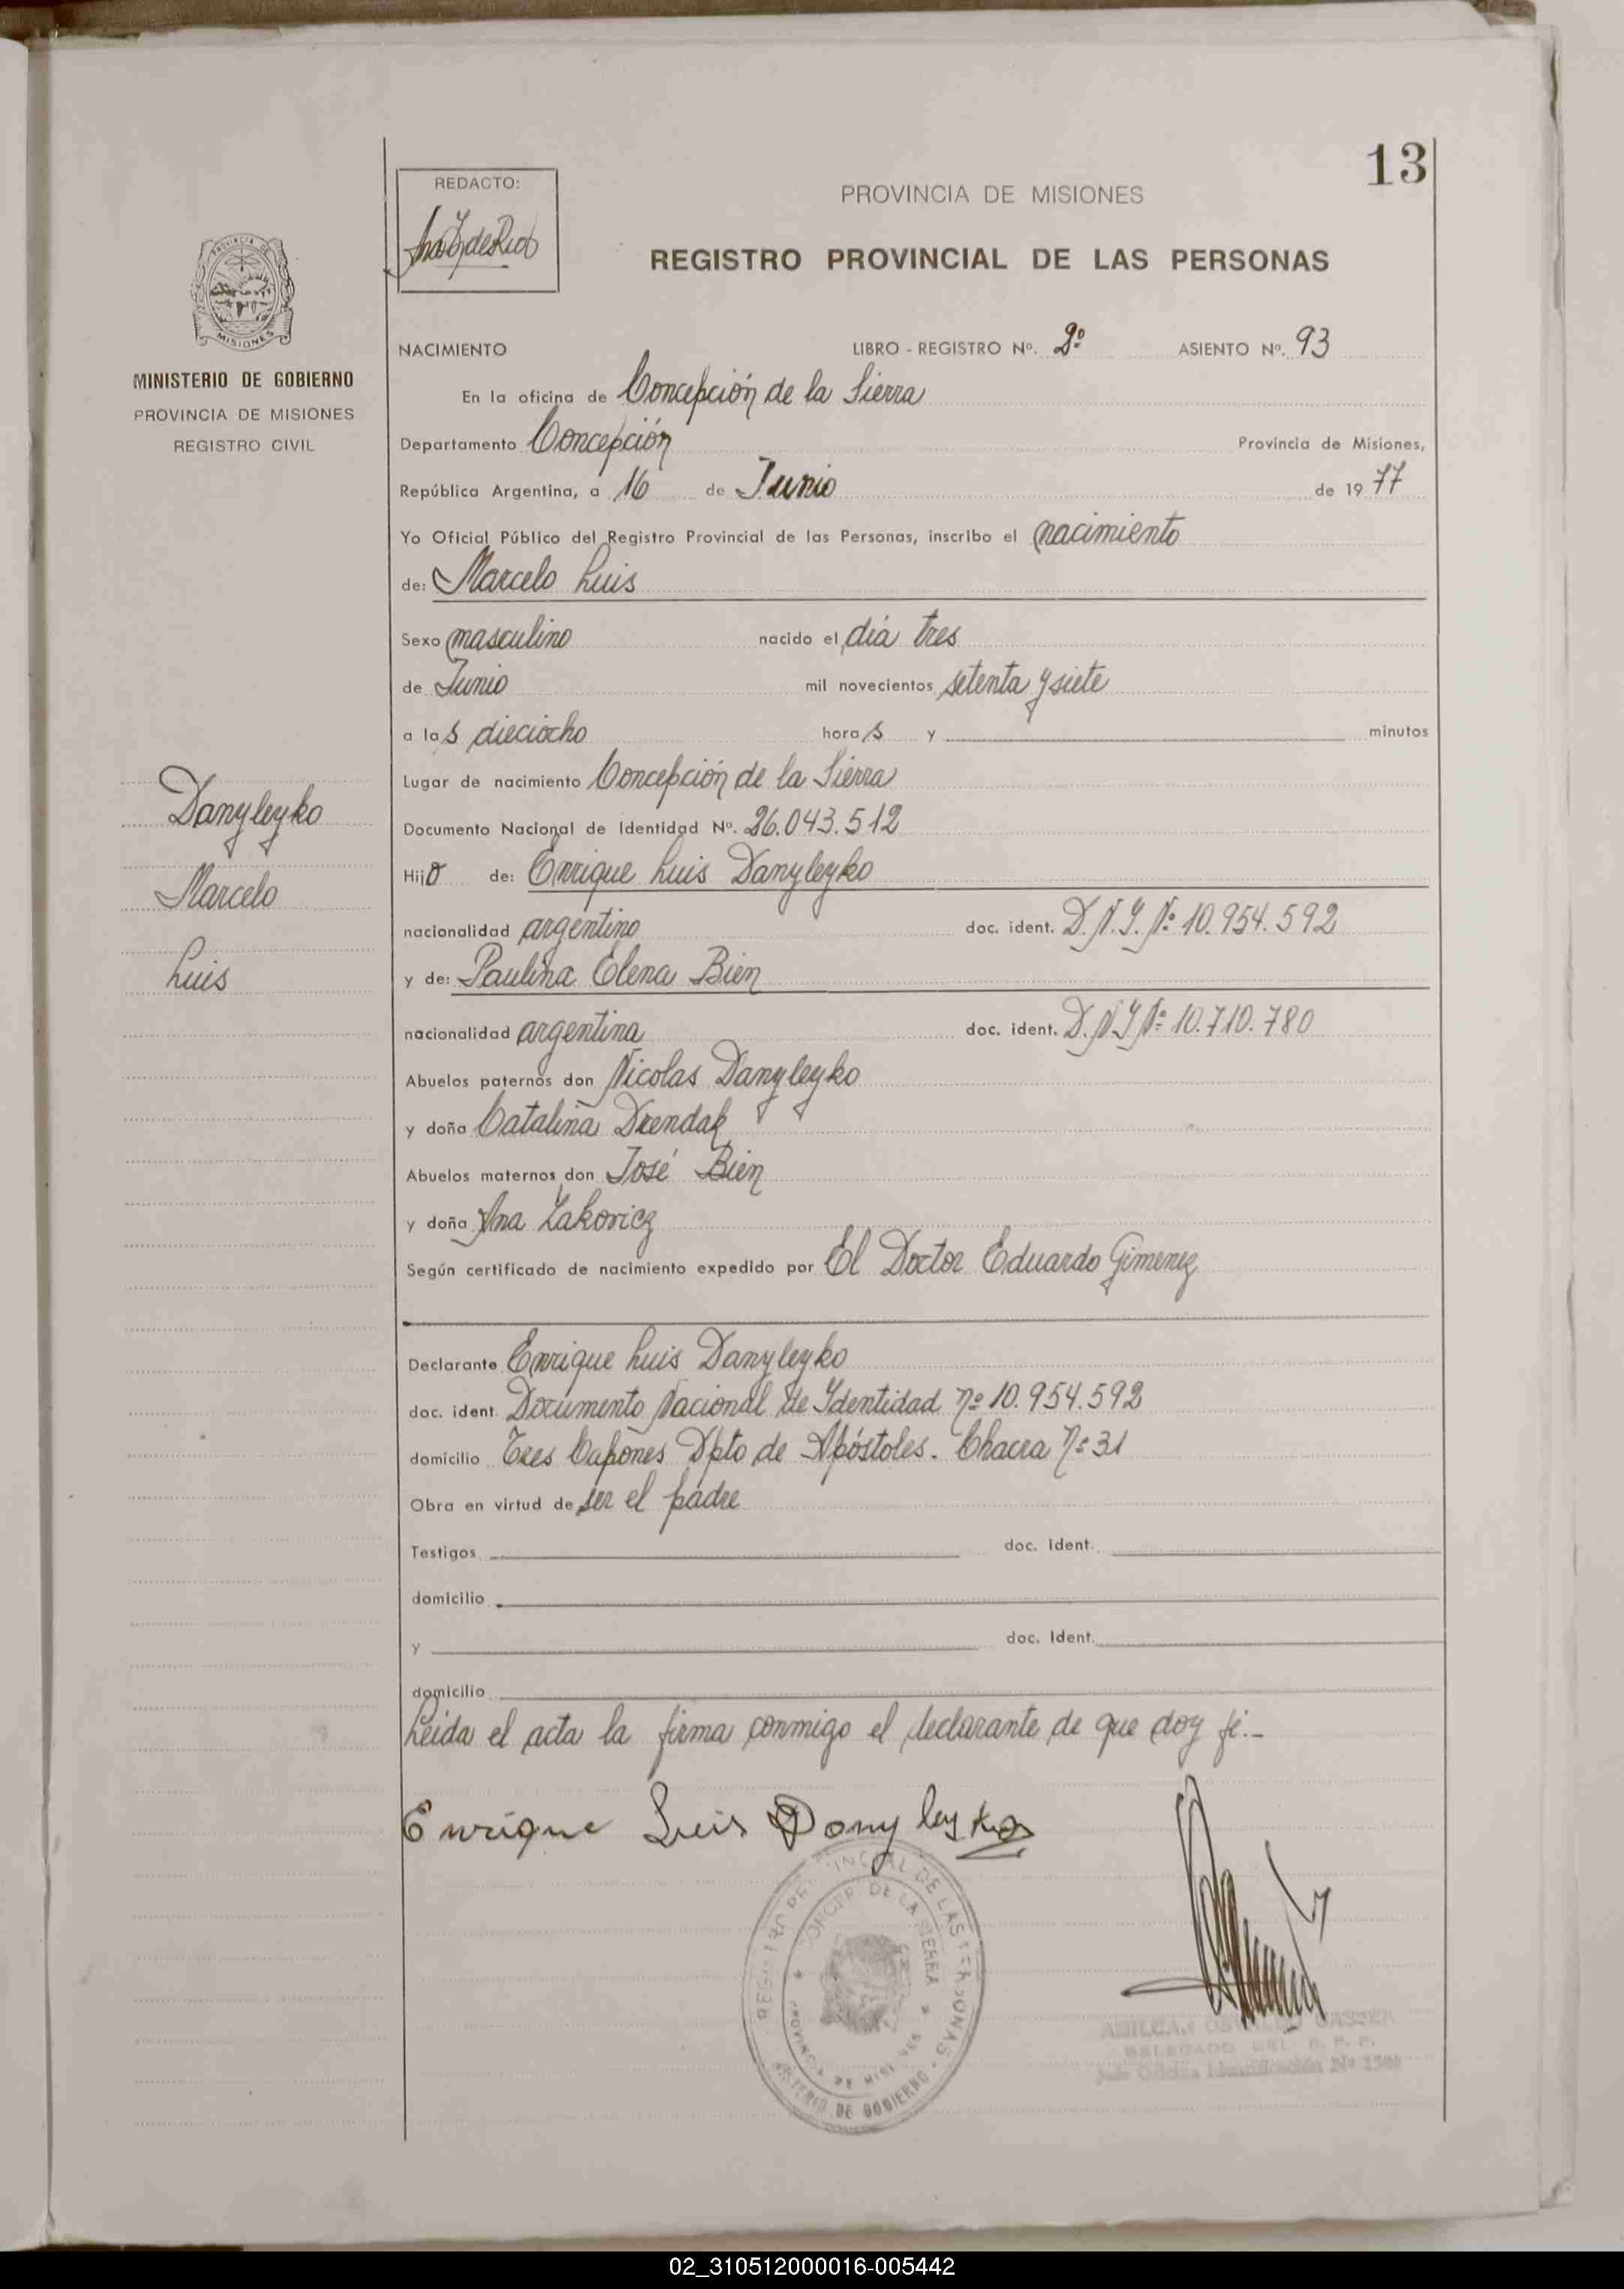 13
REDACTO:
PROVINCIA DE MISIONES
REGISTRO PROVINCIAL DE LAS PERSONAS
PROVINCIA DE
MISIONES
MINISTERIO DE GOBIERNO
PROVINCIA DE MISIONES
REGISTRO CIVIL
NACIMIENTO LIBRO - REGISTRO Nº. 2º ASIENTO Nº. 93
En la oficina de Concepción de la Sierra
Departamento Concepción Provincia de Misiones,
República Argentina, a 16 de Junio de 19 77
Yo Oficial Público del Registro Provincial de las Personas, inscribo el nacimiento
de: Marcelo Luis
Sexo masculino nacido el día tres
de Junio mil novecientos setenta y siete
a las dieciocho horas y minutos
Lugar de nacimiento Concepción de la Sierra
Documento Nacional de Identidad Nº. 26.043.512
Hijo de: Enrique Luis Danyleyko
nacionalidad argentino doc. ident. D.N.I. Nº 10.954.592
y de: Paulina Elena Bien
nacionalidad argentina doc. ident. D.N.I Nº 10.710.780
Abuelos paternos don Nicolas Danyleyko
y doña Catalina Drendak
Abuelos maternos don José Bien
y doña Ana Zakovicz
Según certificado de nacimiento expedido por El Doctor Eduardo Gimenez
Declarante Enrique Luis Danyleyko
doc. ident. Documento Nacional de Identidad nº 10.954.592
domicilio Tres Capones Dpto de Apóstoles. Chacra nº 31
Obra en virtud de ser el padre
Testigos doc. ident.
domicilio
y doc. ident.
domicilio
Leida el acta la firma conmigo el declarante de que doy fé.-
Danyleyko
Marcelo
Luis
Enrique Luis Danyleyko
REGISTRO PROVINCIAL DE LAS PERSONAS
CONCEP. DE LA SIERRA
PROVINCIA DE MISIONES
MINISTERIO DE GOBIERNO
DELEGADO DEL R. P. P.
02_310512000016-005442